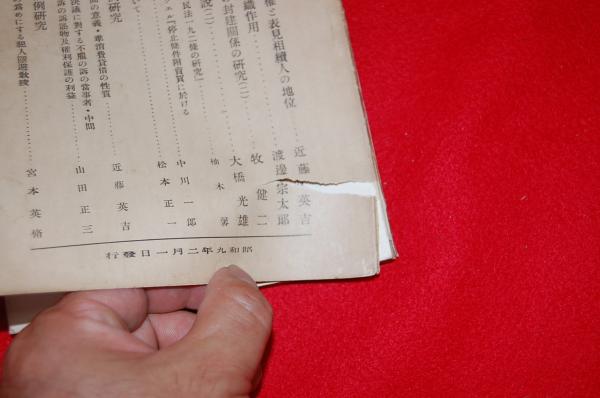 權と表見相續人の地位………近藤英吉
渡邊宗太郎
織作用………牧健二
封建關係の研究(二)………大橋光雄
說(二)………柚木馨
民法一九二條の研究)………中川一郎
エル「停止條件附質に於ける
いて………松本正一
研究
面の意義・準消費貸借の性質………近藤英吉
決議に對する不服の訴の當事者・中間
の訴の訴訟物及權利保護の利益………山田正三
例研究
爲めにする犯人隱避敎唆………宮本英脩
昭和九年二月一日發行